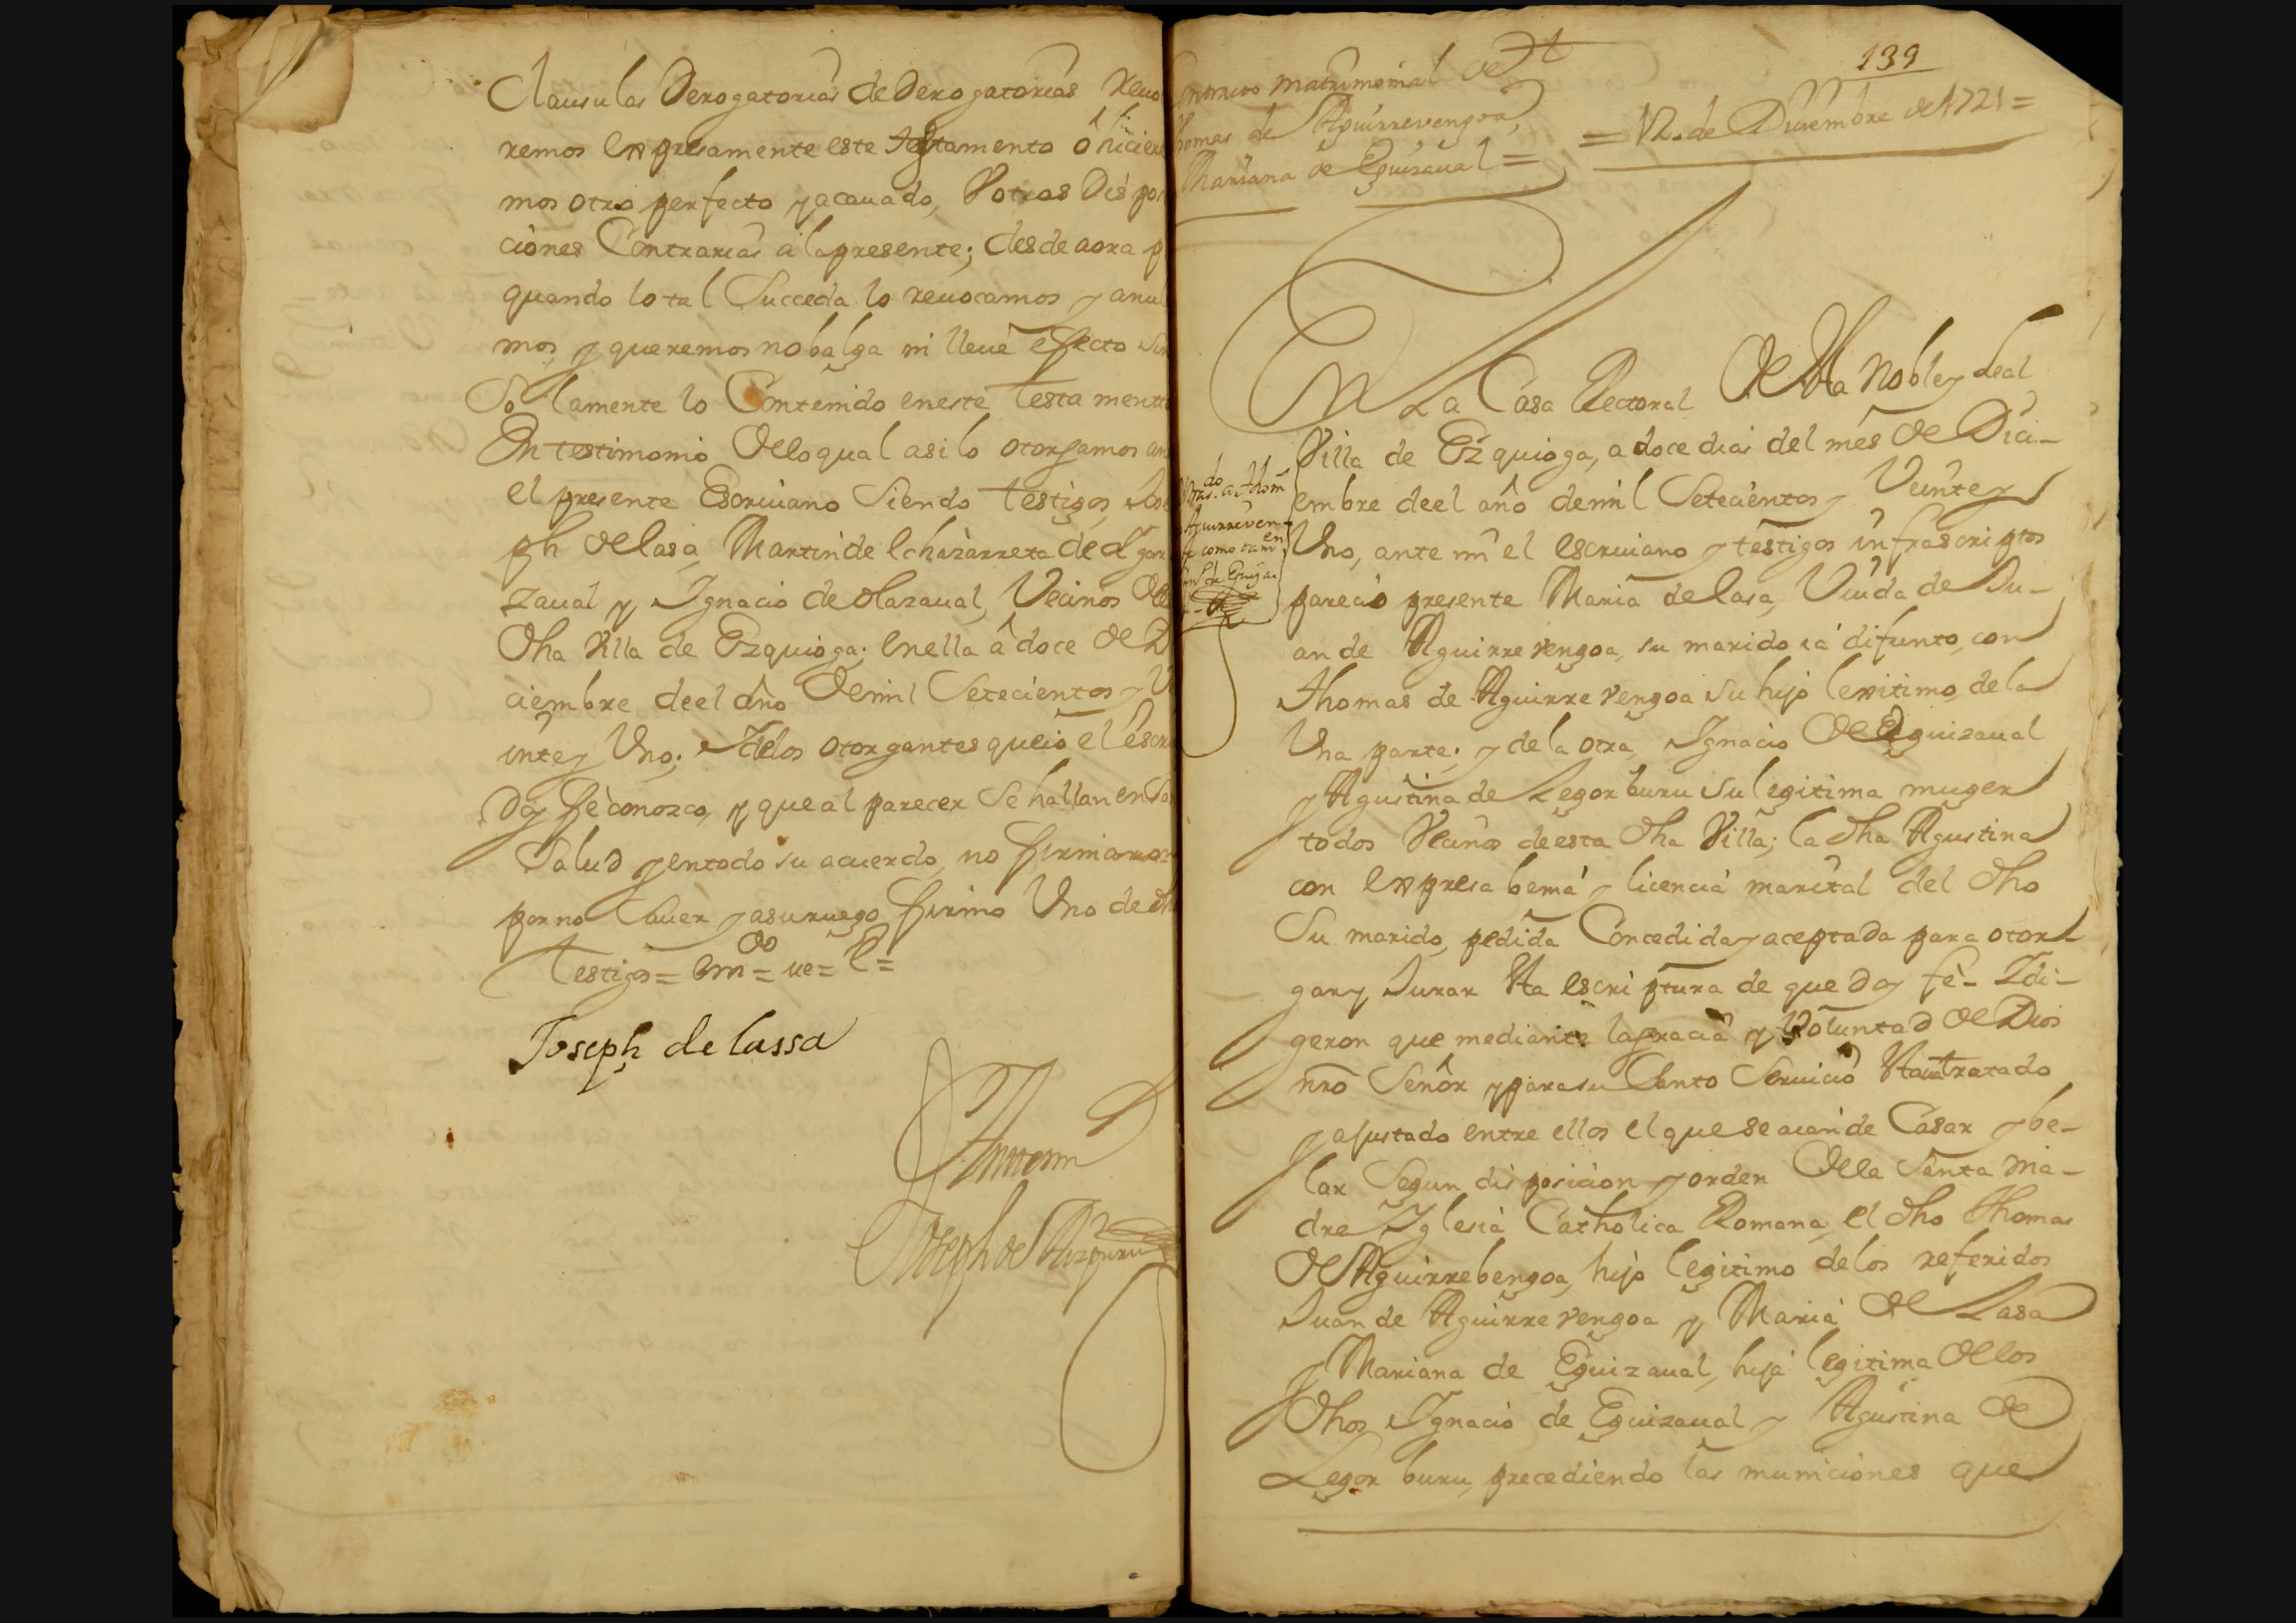 Clausulas Derogatorias de Derogatorias Reuo
remos expresamente este testamento ô hicier
mos otro perfecto y acauado, Y otras Dis pos
ciones Contrarias a la presente; desde aora p
quando lo tal Succeda lo reuocamos y anul
mos, y queremos no balga ni lleue efecto sin
So lamente lo Contenido en este testa mento
En testimonio de lo qual asi lo otorgamos an
el presente Escriuano Siendo testigos, Jose
ph de lasa, Martin de Echazarreta de
zaual y Ignacio de Olazaual, Vecinos de
dha Villa de Ezquioga; en ella â doce de D
ciembre de el año de mil Setecientos y V
inte y Uno; I de los otorgantes que io el escri
Doy fe conozco, y que al parecer Se hallan en Sa
Salud y en todo su acuerdo, no firmaron
por no Sauer y a su ruego firmo Uno de dh
testigos = Em.do = ue = E =
Joseph de lassa
Antemi
Joseph de Aizpuru
139
Contrato matrimonial de
Thomas de Aguirrevengoa,
Mariana de Eguizaual =
= 12. de Diciembre de 1721 =
En La Casa Rectoral de Sta Noble y Leal
Villa de Ezquioga, a doce dias del mes de Dici-
embre de el año de mil Setecientos y Veinte y
Uno, ante mi el escriuano y testigos infrascriptos
parecio presente Maria de lasa, Viuda de Ju-
an de Aguirre vengoa, su marido ia difunto, con
Thomas de Aguirre vengoa su hijo lexitimo, de la
Una parte; y de la otra, Ignacio de Eguizaual
y Agustina de Legorburu su legitima muger
todos Vecinos de esta dha Villa; la dha Agustina
con expresa benia y licencia marital del dho
Su marido, pedida Concedida y aceptada para otor-
gar y Jurar Sta escriptura de que doy fe - I di-
geron que mediante la gracia y Voluntad de Dios
nro Señor y para su Santo Seruicio Staua tratado
y ajustado entre ellos el que se aian de Casar y be-
lar Segun disposicion y orden de la Santa Ma-
dre Iglesia Catholica Romana, el dho Thomas
de Aguirrebengoa, hijo legitimo de los referidos
Juan de Aguirre vengoa y Maria de Lasa
y Mariana de Eguizaual, hija legitima de los
dhos Ignacio de Eguizaual y Agustina de
Legor buru, precediendo las municiones que